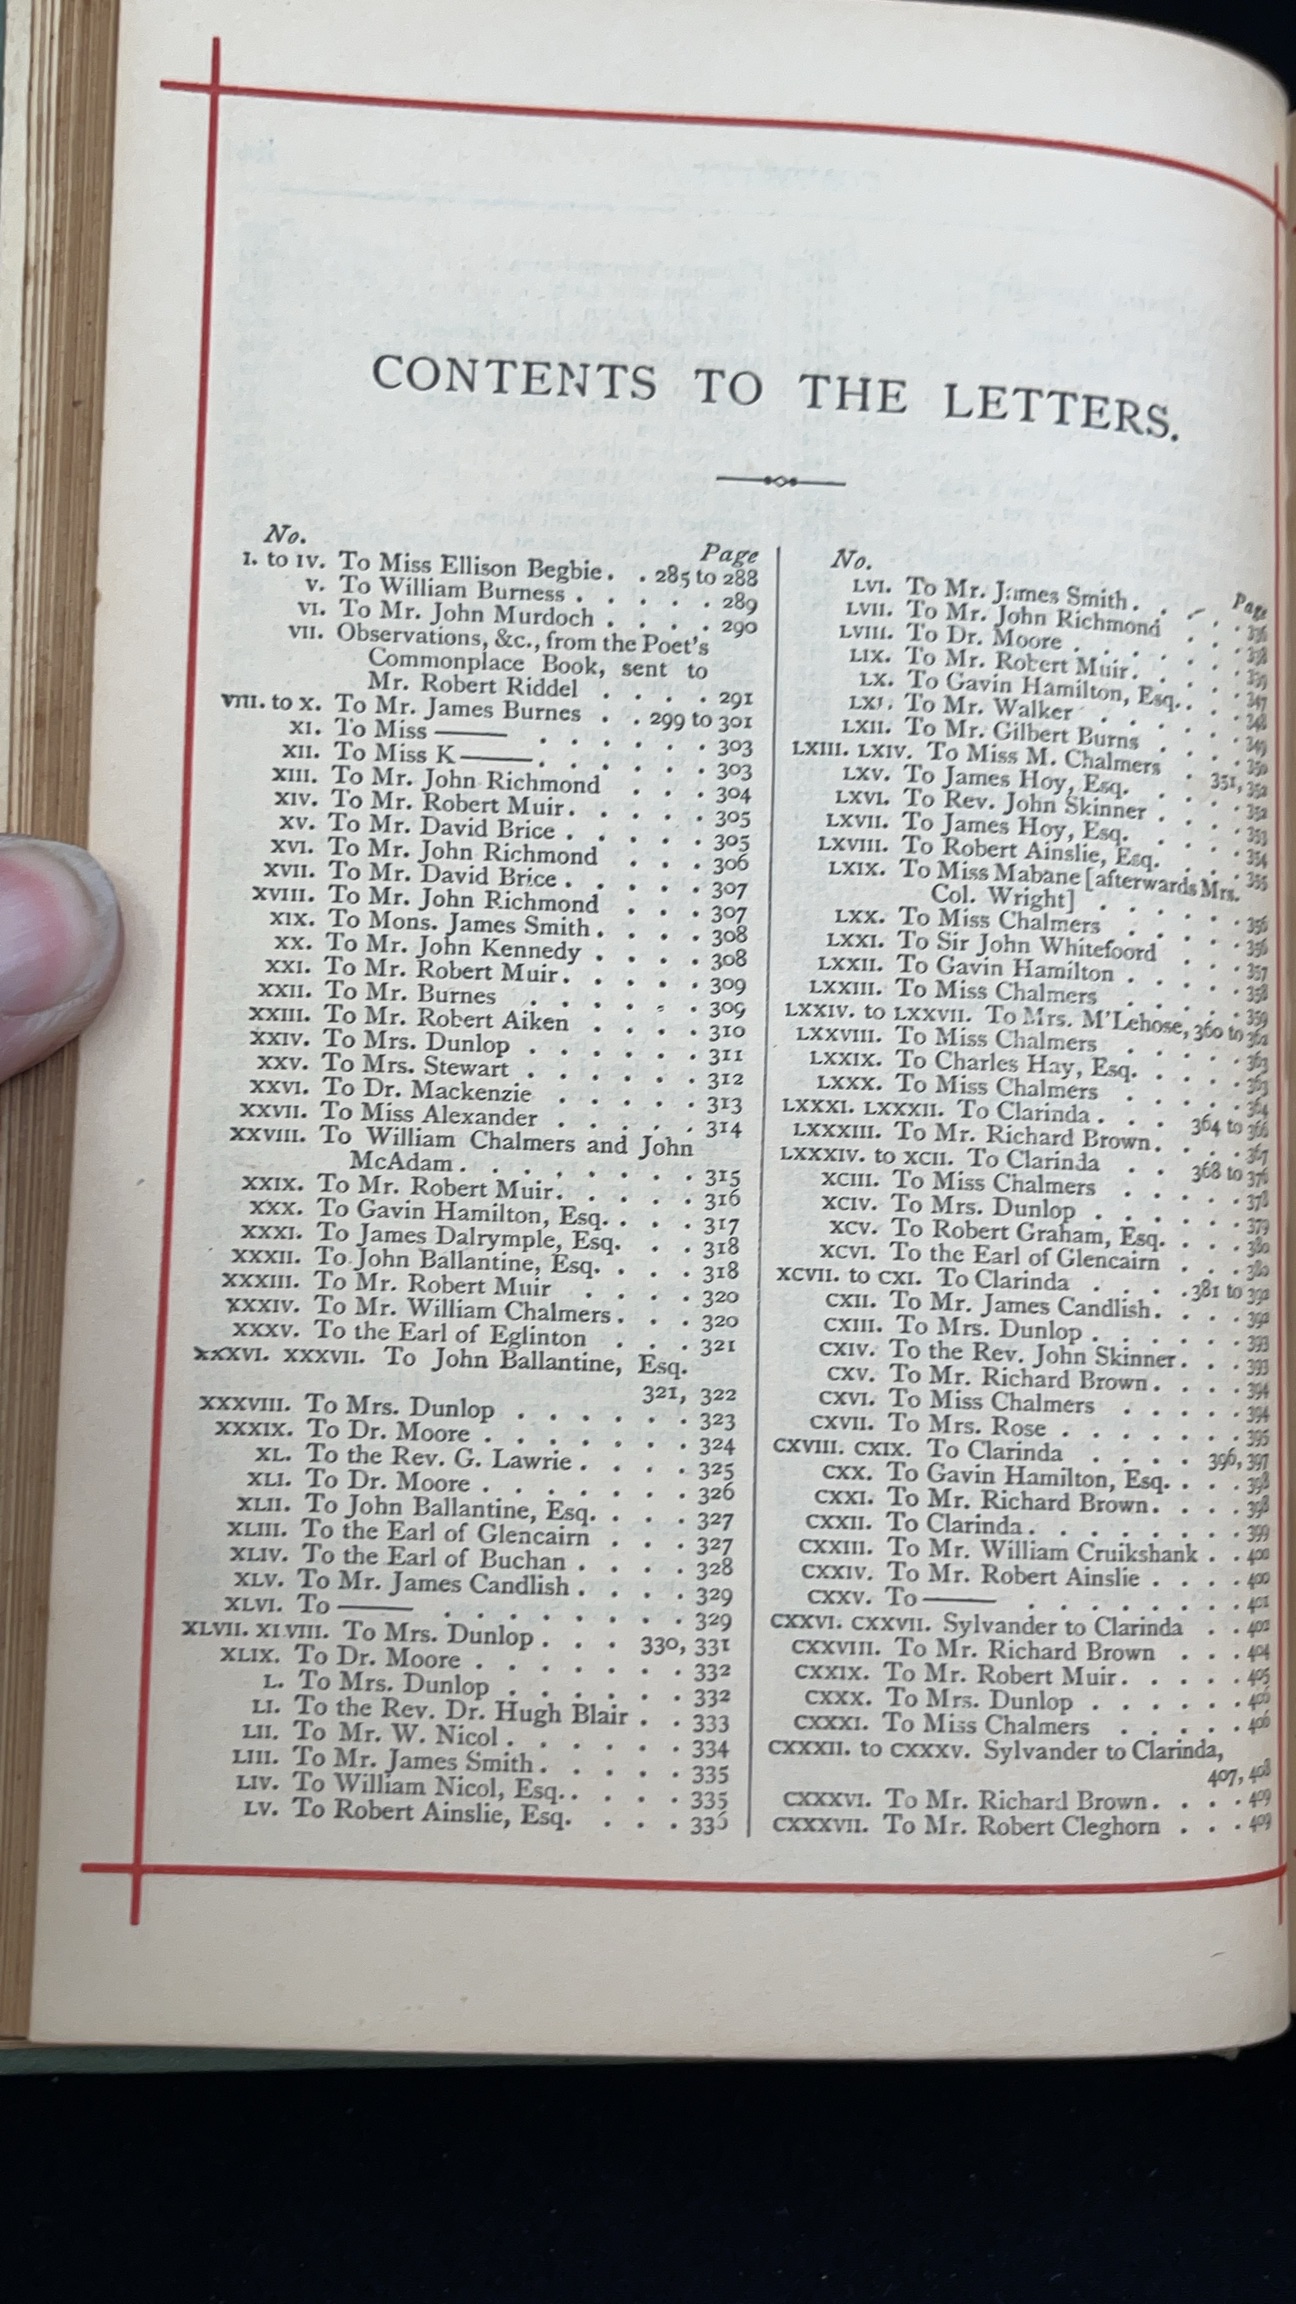 CONTENTS TO THE LETTERS.
No. Page
I. to IV. To Miss Ellison Begbie. . 285 to 288
V. To William Burness . . . . . 289
VI. To Mr. John Murdoch . . . . 290
VII. Observations, &c., from the Poet's
Commonplace Book, sent to
Mr. Robert Riddel . . . . 291
VIII. to X. To Mr. James Burnes . . 299 to 301
XI. To Miss —— . . . . . . 303
XII. To Miss K——. . . . . . 303
XIII. To Mr. John Richmond . . . 304
XIV. To Mr. Robert Muir. . . . . 305
XV. To Mr. David Brice . . . . . 305
XVI. To Mr. John Richmond . . . 306
XVII. To Mr. David Brice . . . . . 307
XVIII. To Mr. John Richmond . . . 307
XIX. To Mons. James Smith. . . . 308
XX. To Mr. John Kennedy . . . . 308
XXI. To Mr. Robert Muir. . . . . 309
XXII. To Mr. Burnes . . . . . 309
XXIII. To Mr. Robert Aiken . . . . 310
XXIV. To Mrs. Dunlop . . . . . . 311
XXV. To Mrs. Stewart . . . . . . 312
XXVI. To Dr. Mackenzie . . . . . 313
XXVII. To Miss Alexander . . . . . 314
XXVIII. To William Chalmers and John
McAdam . . . . . . . 315
XXIX. To Mr. Robert Muir. . . . . 316
XXX. To Gavin Hamilton, Esq. . . . 317
XXXI. To James Dalrymple, Esq. . . 318
XXXII. To John Ballantine, Esq. . . . 318
XXXIII. To Mr. Robert Muir . . . . 320
XXXIV. To Mr. William Chalmers . . . 320
XXXV. To the Earl of Eglinton . . . 321
XXXVI. XXXVII. To John Ballantine, Esq.
321, 322
XXXVIII. To Mrs. Dunlop . . . . . . 323
XXXIX. To Dr. Moore . . . . . . . 324
XL. To the Rev. G. Lawrie . . . . 325
XLI. To Dr. Moore . . . . . . . 326
XLII. To John Ballantine, Esq. . . . 327
XLIII. To the Earl of Glencairn . . . 327
XLIV. To the Earl of Buchan . . . . 328
XLV. To Mr. James Candlish . . . . 329
XLVI. To —— . . . . . . . . 329
XLVII. XLVIII. To Mrs. Dunlop . . . 330, 331
XLIX. To Dr. Moore . . . . . . . 332
L. To Mrs. Dunlop . . . . . . 332
LI. To the Rev. Dr. Hugh Blair . . 333
LII. To Mr. W. Nicol . . . . . . 334
LIII. To Mr. James Smith . . . . . 335
LIV. To William Nicol, Esq. . . . . 335
LV. To Robert Ainslie, Esq. . . . 336
No. Page
LVI. To Mr. James Smith. . . . 336
LVII. To Mr. John Richmond . . . 338
LVIII. To Dr. Moore . . . . . . 339
LIX. To Mr. Robert Muir. . . . . 347
LX. To Gavin Hamilton, Esq. . . . 348
LXI. To Mr. Walker . . . . . . 349
LXII. To Mr. Gilbert Burns . . . . 350
LXIII. LXIV. To Miss M. Chalmers . 351, 352
LXV. To James Hoy, Esq. . . . . 352
LXVI. To Rev. John Skinner . . . . 353
LXVII. To James Hoy, Esq. . . . . 354
LXVIII. To Robert Ainslie, Esq. . . . 355
LXIX. To Miss Mabane [afterwards Mrs.
Col. Wright] . . . . . . 356
LXX. To Miss Chalmers . . . . . 356
LXXI. To Sir John Whitefoord . . . 357
LXXII. To Gavin Hamilton . . . . . 358
LXXIII. To Miss Chalmers . . . . . 359
LXXIV. to LXXVII. To Mrs. M'Lehose, 360 to 362
LXXVIII. To Miss Chalmers . . . . . 363
LXXIX. To Charles Hay, Esq. . . . . 363
LXXX. To Miss Chalmers . . . . . 364
LXXXI. LXXXII. To Clarinda . . . 364 to 366
LXXXIII. To Mr. Richard Brown . . . . 367
LXXXIV. to XCII. To Clarinda . . 368 to 376
XCIII. To Miss Chalmers . . . . . 378
XCIV. To Mrs. Dunlop . . . . . . 379
XCV. To Robert Graham, Esq. . . . 380
XCVI. To the Earl of Glencairn . . . 380
XCVII. to CXI. To Clarinda . . . . 381 to 392
CXII. To Mr. James Candlish. . . . 392
CXIII. To Mrs. Dunlop . . . . . . 393
CXIV. To the Rev. John Skinner . . . 393
CXV. To Mr. Richard Brown . . . . 394
CXVI. To Miss Chalmers . . . . . 394
CXVII. To Mrs. Rose . . . . . . . 395
CXVIII. CXIX. To Clarinda . . . . 396, 397
CXX. To Gavin Hamilton, Esq. . . . 398
CXXI. To Mr. Richard Brown. . . . 398
CXXII. To Clarinda. . . . . . . . 399
CXXIII. To Mr. William Cruikshank . . 400
CXXIV. To Mr. Robert Ainslie . . . . 400
CXXV. To —— . . . . . . . . 401
CXXVI. CXXVII. Sylvander to Clarinda . . 402
CXXVIII. To Mr. Richard Brown . . . 404
CXXIX. To Mr. Robert Muir. . . . . 405
CXXX. To Mrs. Dunlop . . . . . . 406
CXXXI. To Miss Chalmers . . . . . 406
CXXXII. to CXXXV. Sylvander to Clarinda,
407, 408
CXXXVI. To Mr. Richard Brown. . . . 409
CXXXVII. To Mr. Robert Cleghorn . . . 409